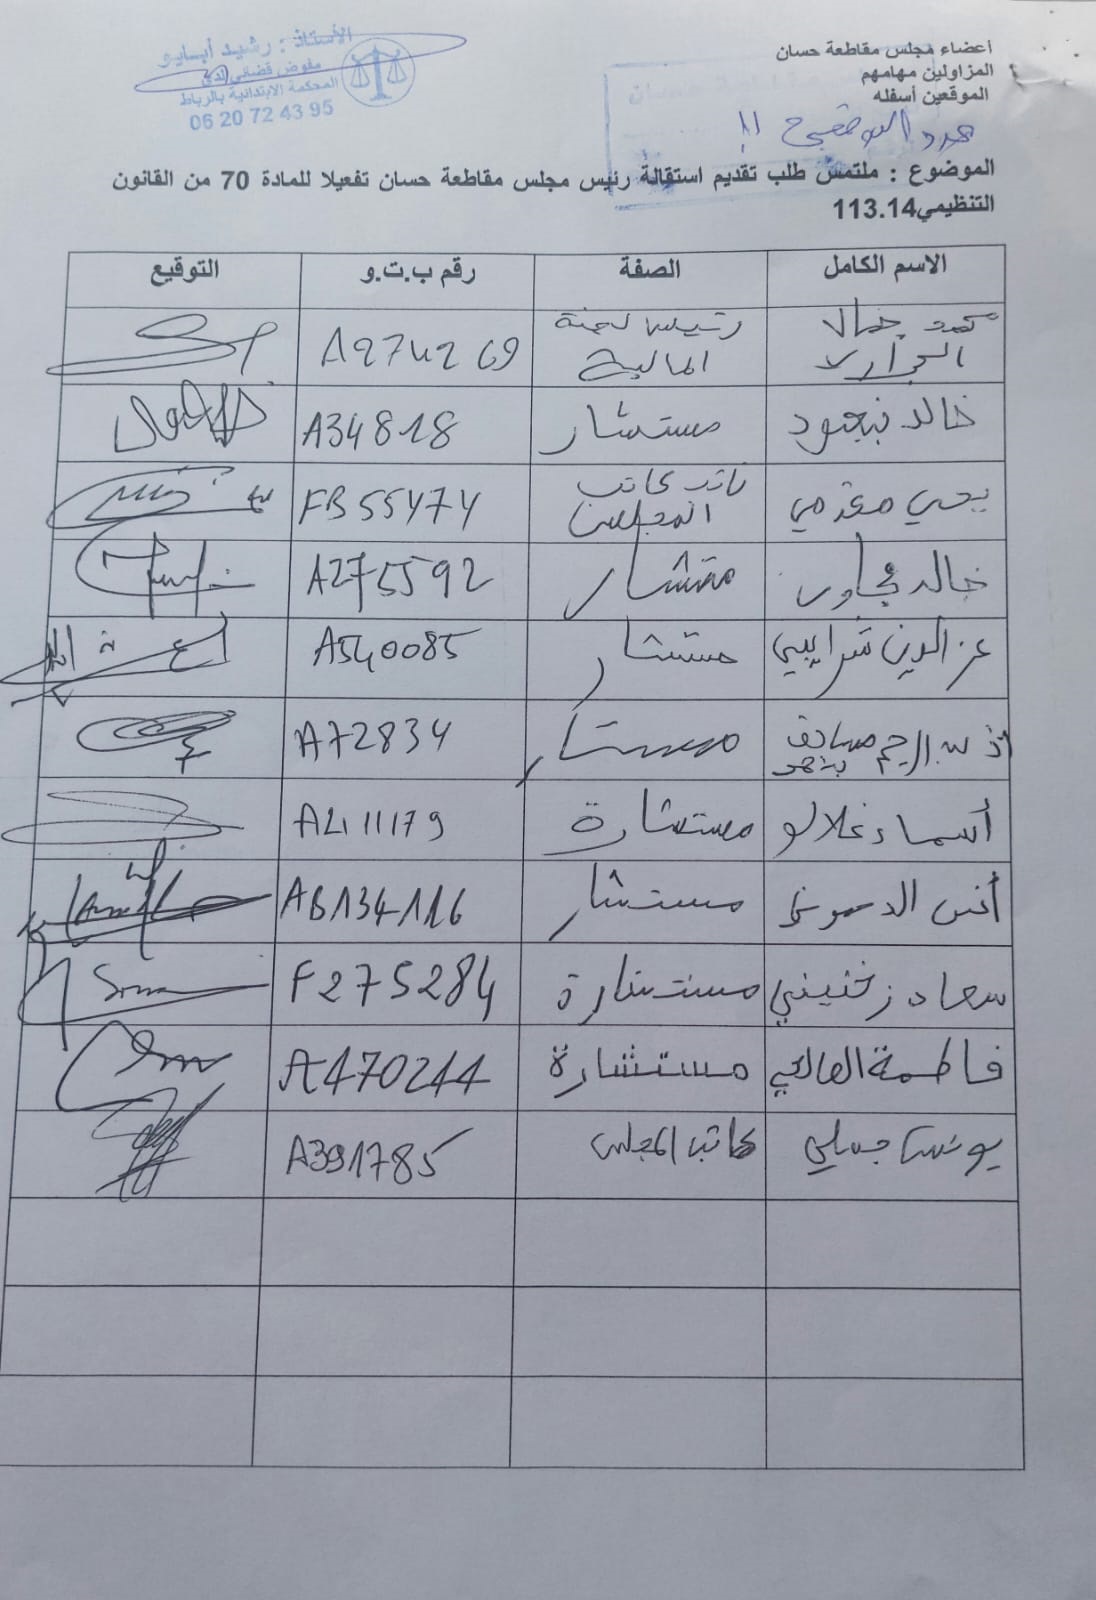 الأستاذ : رشيد أبسايو
مفوض قضائي لدى
المحكمة الابتدائية بالرباط
06 20 72 43 95
أعضاء مجلس مقاطعة حسان
المزاولين مهامهم
الموقعين أسفله
عدد الموقعين 11
الموضوع : ملتمس طلب تقديم استقالة رئيس مجلس مقاطعة حسان تفعيلا للمادة 70 من القانون
التنظيمي113.14
الاسم الكامل الصفة رقم ب.ت.و التوقيع
محمد جمال رئيس لجنة
المالية A274269
خالد بنعبود مستشار A34818
يحيى مقدمي نائب كاتب
المجلس FB55474
خالد مجاور مستشار A275592
عز الدين شرايبي مستشار A540085
مستشار A72834
أسماء غلالو مستشارة A411179
أنس الدحموني مستشار AB134116
سعاد زخنيني مستشارة F275284
فاطمة مستشارة A470244
يونس جسلي كاتب المجلس A391785